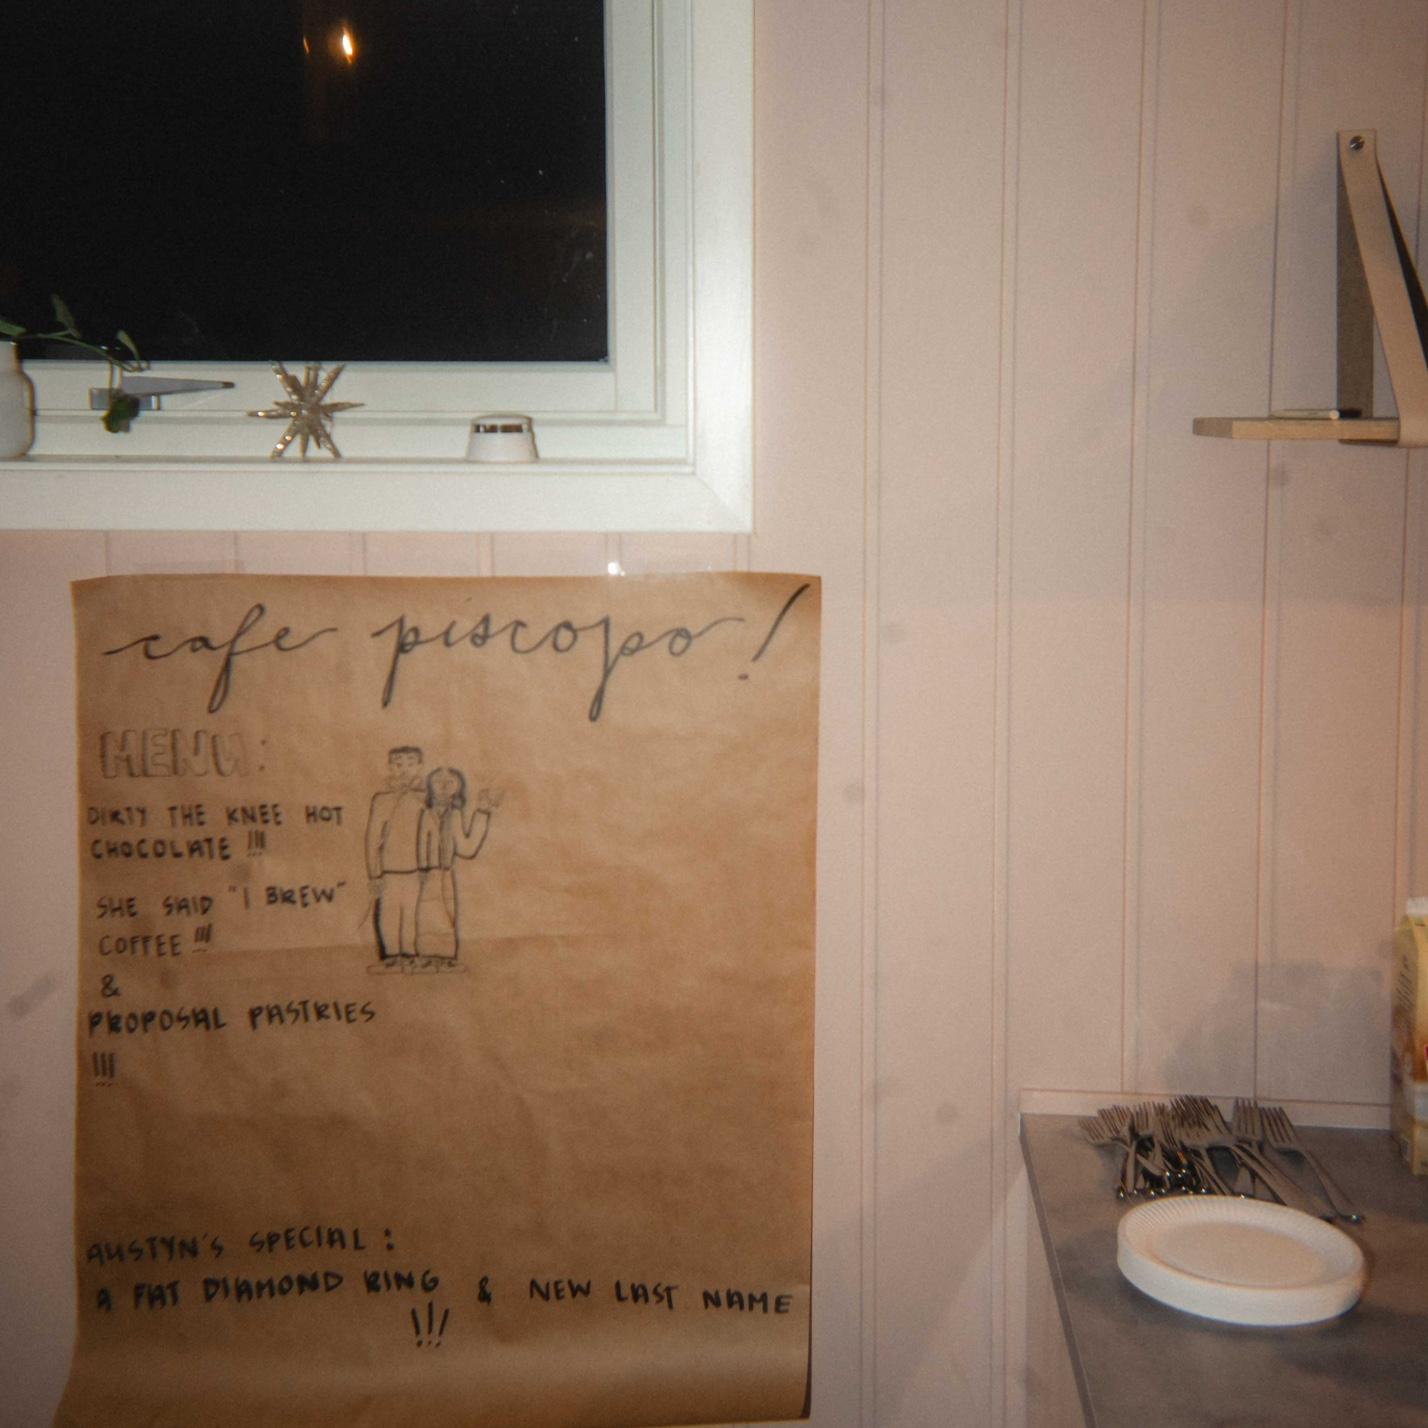 cafe piscopo!
MENU:
DIRTY THE KNEE HOT
CHOCOLATE !!!
SHE SAID "I BREW"
COFFEE !!!
&
PROPOSAL PASTRIES
!!!
AUSTYN'S SPECIAL:
A FAT DIAMOND RING & NEW LAST NAME
!!!